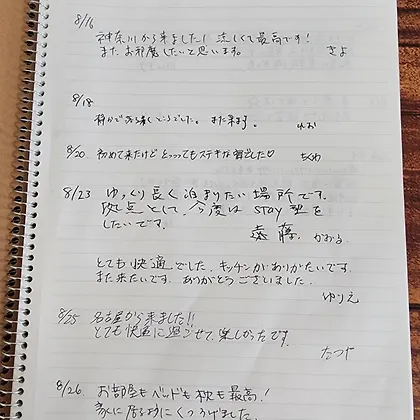 8/16
神奈川から来ました! 涼しくて最高です!
また、お邪魔したいと思いますね。 きよ
8/18
静かで落ち着くところでした。また来ます。 れお
8/20 初めて来たけどとってもステキな宿でした♡ ちくわ
8/23 ゆっくり長く泊まりたい場所です。
拠点として、今度は stay
したいです。
遠藤 かおる
とても快適でした。キッチンがありがたいです。
また来たいです。ありがとうございました。
ゆりえ
8/25 名古屋から来ました!!
とても快適に過ごせて、楽しかったです。
たつや
8/26 お部屋もベッドも枕も最高!
家に居るようにくつろげました。